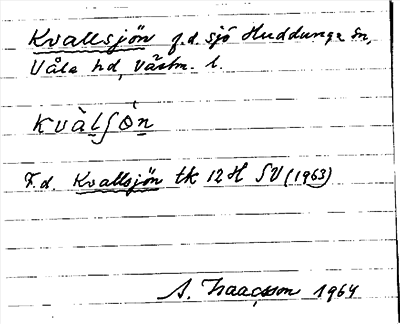 Kvallsjön f.d. sjö Huddunge sn,
Våla hd, Västm. l.
kvàlʃö̀n
F.d. Kvallsjön tk 12 H SV (1963)
A. Isaacsson 1964